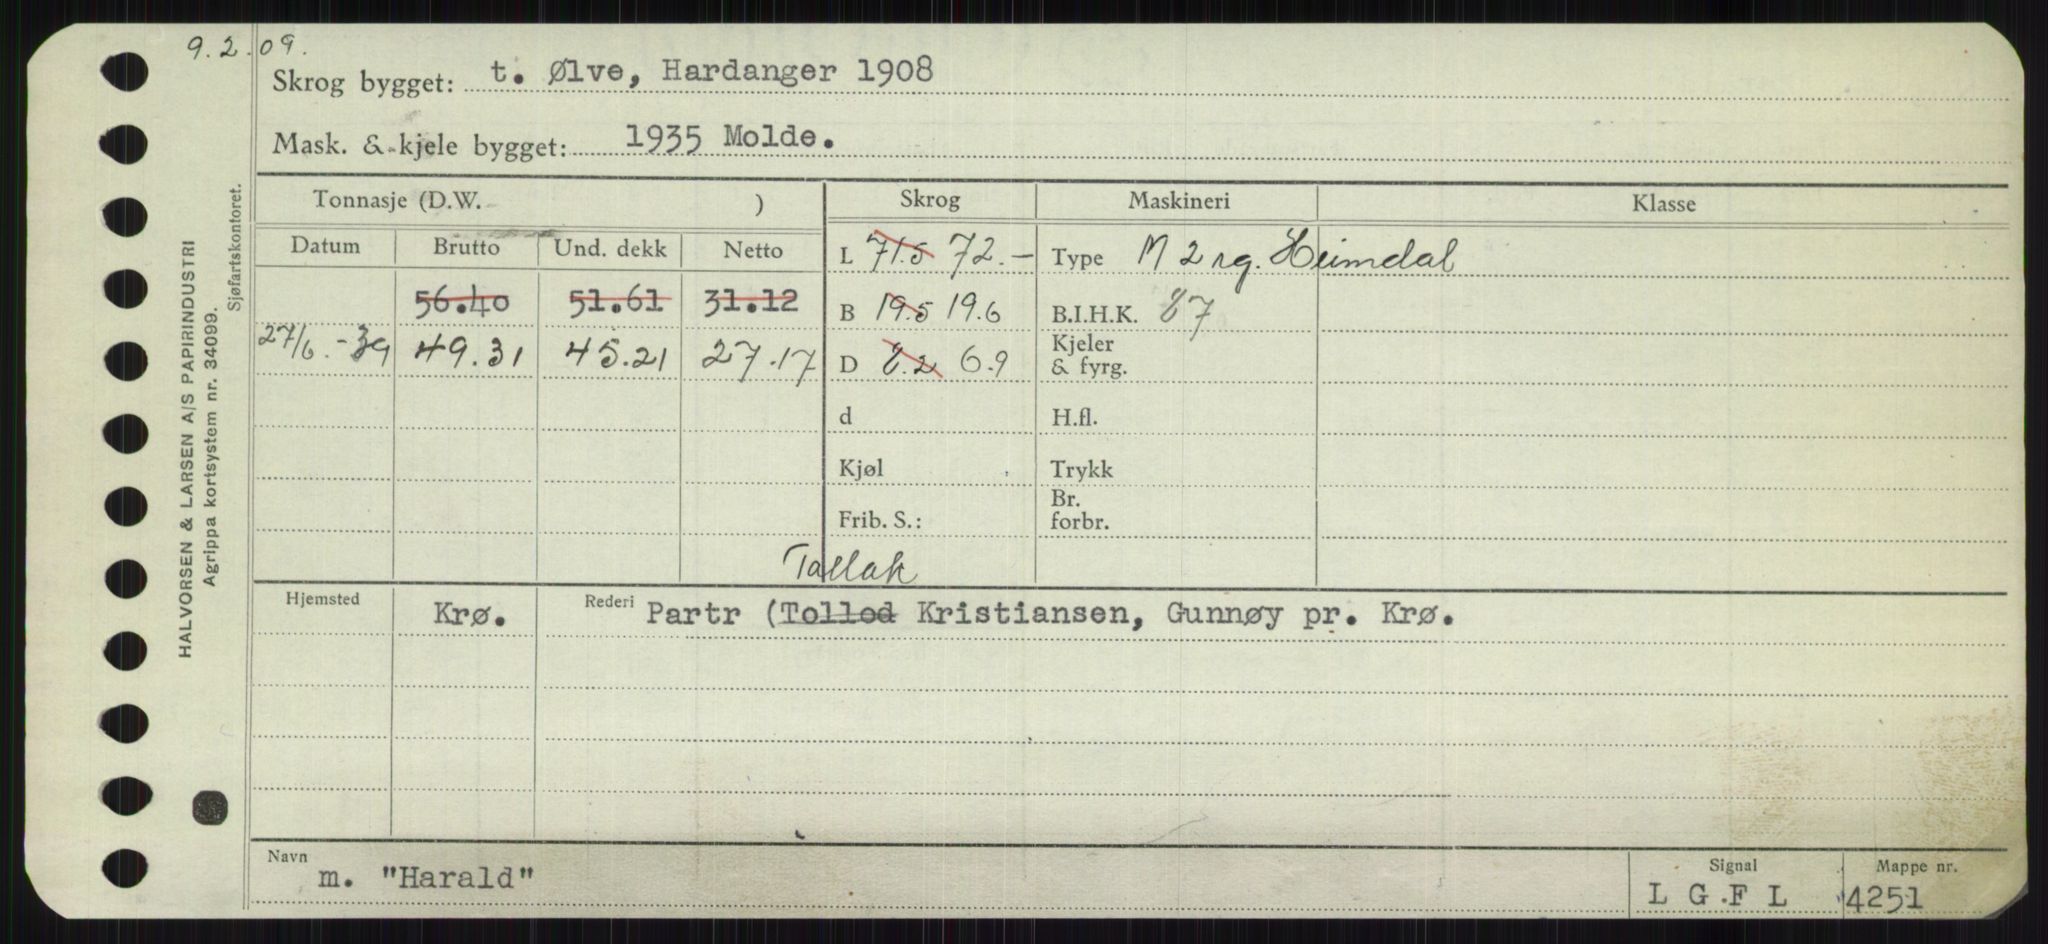 9.2.09.
Skrog bygget: t. Ølve, Hardanger 1908
Mask. & kjele bygget: 1935 Molde.
Tonnasje (D.W. ) Skrog Maskineri Klasse
Datum Brutto Und. dekk Netto L 71.5 72.- Type M 2 sg. Heimdal
56.40 51.61 31.12 B 19.5 19.6 B.I.H.K. 87
27/6.-39 49.31 45.21 27.17 D 8.2 6.9 Kjeler
& fyrg.
d H.fl.
Kjøl Trykk
Br.
Frib. S.: forbr.
Tallak
Hjemsted Krø. Rederi Partr (Tollod Kristiansen, Gunnøy pr. Krø.
Navn m. "Harald" Signal L G F L Mappe nr. 4251
HALVORSEN & LARSEN A/S PAPIRINDUSTRI
Agrippa kortsystem nr. 34099.
Sjøfartskontoret.